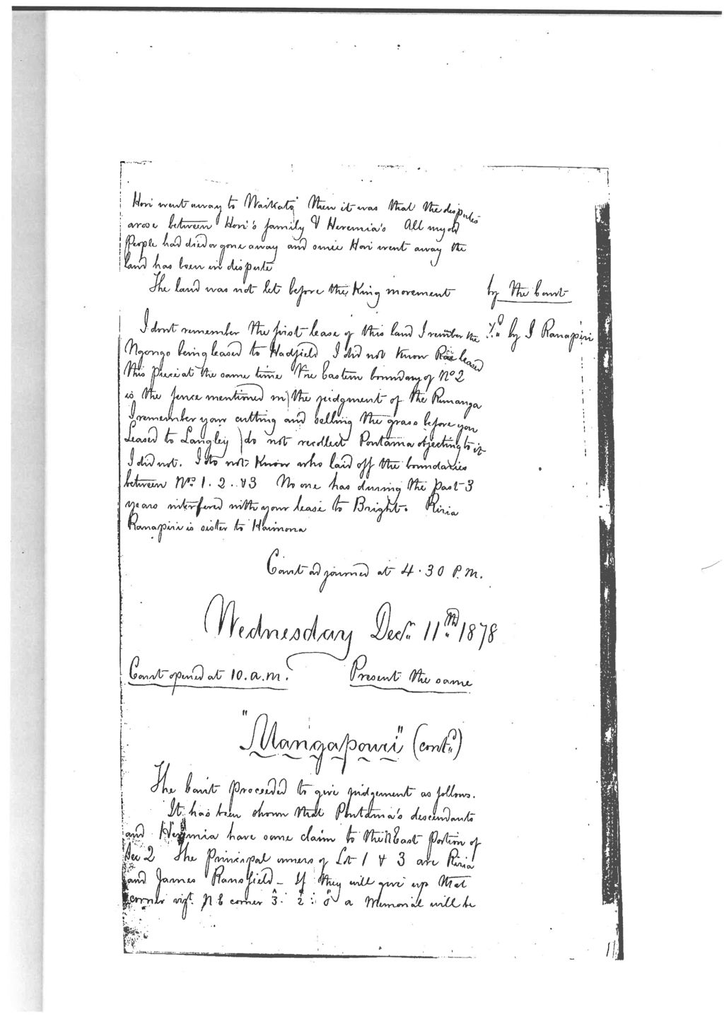 Hori went away to Waikato then it was that the dispute
arose between Hori's family & Heremia's All my old
People had died or gone away and since Hori went away the
land has been in dispute
The land was not let before the King movement by the Court
I dont remember the first lease of this land I remember the by I Ranapiri
Ngongo being leased to Hadfield I did not know leased
this piece at the same time The Eastern boundary of No 2
is the fence mentioned in the judgment of the Runanga
I remember your cutting and selling the grass before you
leased to Langley I do not recollect Pontama objecting to it
I did not. I do not know who laid off the boundaries
between Nos 1. 2. & 3 No one has during the past 3
years interfered with your lease to Bright. Riria
Ranapiri is sister to Haimona
Court adjourned at 4.30 P.M.
Wednesday Decr. 11th 1878
Court opened at 10.a.m. Present the same
"Mangapouri" (contd)
The Court proceeded to give judgement as follows.
It has been shown that Pontama's descendants
and Heremia have some claim to the East Portion of
Sec 2 The Principal owners of Lot 1 & 3 are Riria
and James Ransfield - If they will give up that
corner vizt. N E corner 3. 2. 0 a Memorial will be
11